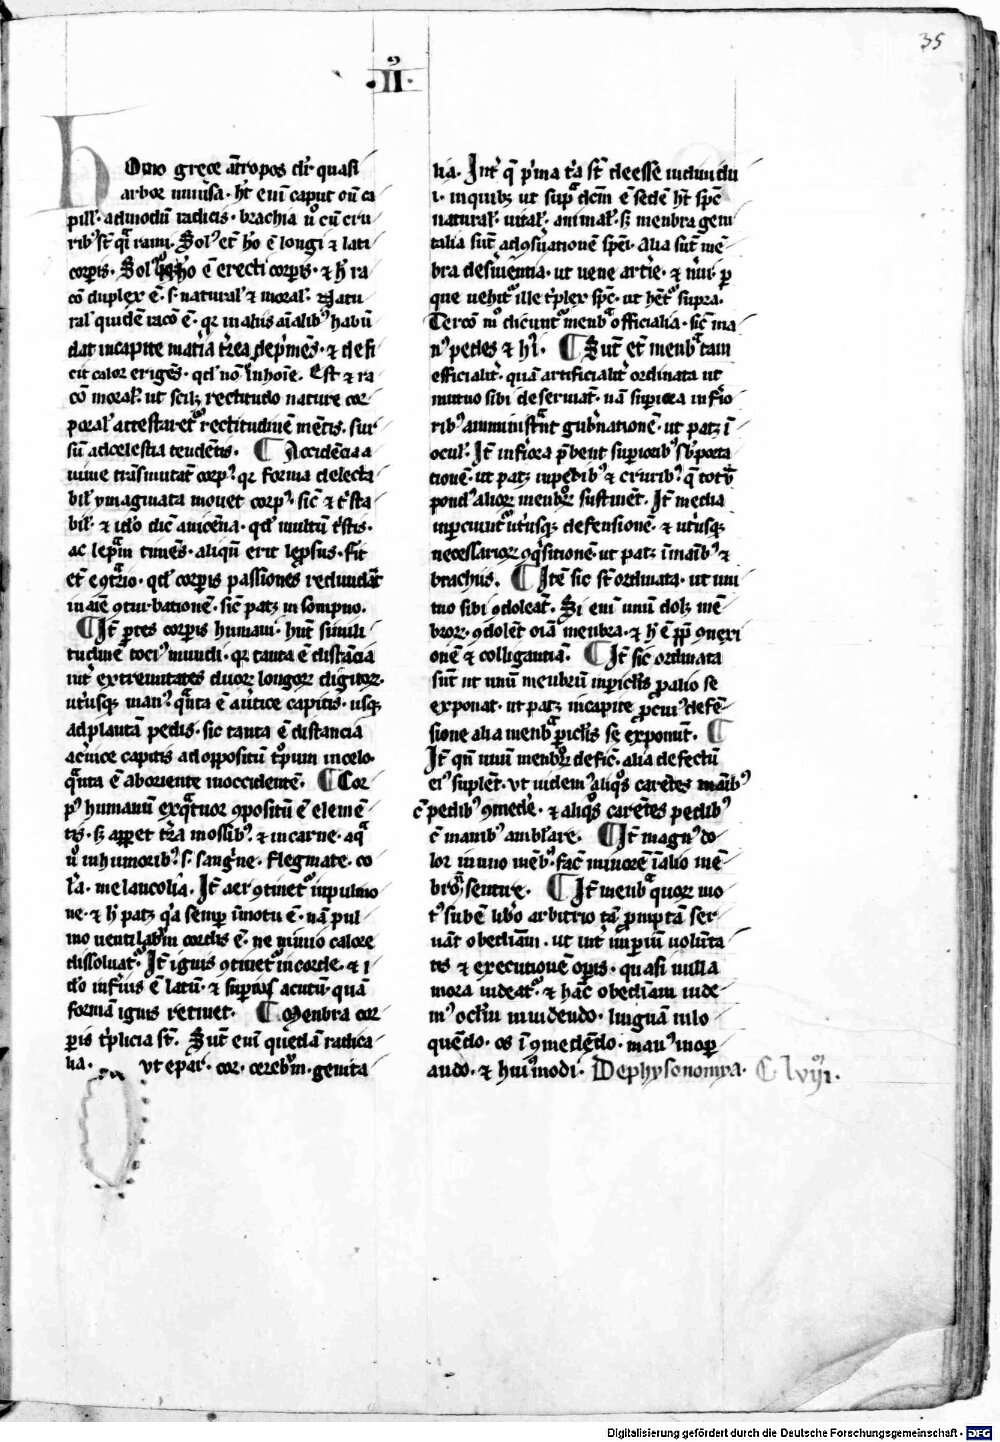 35
·II·
Homo grece ātropos dr̄ quasi
arbor inuersa · ht̄ enī caput cū ca
pill' · admodū radicis · brachia u̾o cū cru
rib᾽ st̄ q̄i rami · Sol᾽ et̄ hō ē longi ⁊ lati
corporis · Sol᾽ hō ē erecti corꝑis · ⁊ h̾ ra
cō duplex ē · s · natural' ⁊ moral' · Natu
ral' quidē racō ē · qr in aliis aīalib᾽ habū
dat in capite mat̾ia t̾rea dep̾mēs · ⁊ defi
cit calor erigēs · qd' nō in hoīe · Est ⁊ ra
cō moral' · ut scilꝫ rectitudo nature cor
poral' attestaret᾽ rectitudinē mētis · sur
sū ad celestia tendētis · ¶ Accidēcia a
nime trāsmutāt corp᾽ · qꝫ forma delecta
bil' ymaginata mouet corp᾽ · sic̄ ⁊ t̾sta
bil' · ⁊ ido̾ dic̄ auicēna · qd' multū t̾stis ·
ac lep̄m timēs · aliqn̄ erit lep̄sus · fit
et̄ ecōt̾rio · qd' corꝑis passiones redundāt
in aīe ꝯturbationē · sic̄ patꝫ in sompno ·
¶ It̄ ꝑtes corꝑis humani · hn̄t simili
tudinē toci᾽ mundi · qr tanta ē distācia
int̾ extremitates duoꝝ longoꝝ digitoꝝ ·
ut̾usqꝫ man᾽ · q̄nta ē a u̾tice capitis · usqꝫ
ad plantā pedis · sic tanta ē distancia
a c̾uice capitis ad oppositū t̾ꝑium in celo ·
q̄nta ē ab oriente in occidentē · ¶ Cor
p᾽ humanū ex q̄tuor ꝯpositū ē elemē
tis · sꝫ apꝑet t̾ra in ossib᾽ · ⁊ in carne · aq̄
u̾o in humorib᾽ · s · sang̾ne · flegmate · co
l̾a · melancolia · It̄ aer ꝯtinet᾽ in pulmo
ne · ⁊ h̾ patꝫ q̾a semꝑ in motu ē · nā pul
mo uentilab̾m cordis ē · ne nimio calore
dissoluat᾽ · It̄ ignis ꝯtinet᾽ in corde · ⁊ i
do̾ inferius ē latū · ⁊ suꝑius acutū · quā
formā ignis retinet · ¶ Menbra cor
ꝑis t̾plicia st̄ · Sūt enī quedā radica
lia · ut epar · cor · cereb̾m · genita
lia · Int̾ q̄ p̾ma t̾a st̄ de esse indiuidu
i · in quibꝫ ut sup̄ dcm̄ ē sedē ht̄ spc̄
natural' · uital' · animal' · sꝫ menbra geni
talia sūt ad ꝯs̾uationē spēi · Alia sūt mē
bra des̾uientia · ut uene art̾ie · ⁊ n̾ui · ꝑ
que uehit᾽ ille t̾plex spc̄ · ut hēt᾽ supra ·
Tercō mō dicunt᾽ menb̄ officialia · sic̄ ma
n᾽ pedes ⁊ h̾i · ¶ Sūt et̄ menb̄ tam
efficialit̾ · quā artificialit̾ ordinata ut
mutuo sibi deseruiāt · nā suꝑiora infīo
rib᾽ amministrāt gub̾nationē · ut patꝫ ī
ocul' · It̄ inf̾iora p̄bent suꝑiorib᾽ sb̾porta
tionē · ut patꝫ in pedib᾽ ⁊ crurib᾽ · q̄ toti᾽
pond᾽ alioꝝ menbroꝝ sustinēt · It̄ media
inꝑciunt᾽ ut̾usqꝫ defensionē · ⁊ ut̾usqꝫ
necessarioꝝ ꝯq̾sitionē · ut patꝫ ī manib᾽ ⁊
brachiis · ¶ Itē sic st̄ ordinata · ut mu
tuo sibi ꝯdoleāt · Si enī unū dolꝫ mē
broꝝ · ꝯdolēt oīa menbra · ⁊ h̾ ē ꝓpt̾ ꝯnexi
onē ⁊ colligantiā · ¶ It̄ sic ordinata
sūt ut unū menbrū in ꝑiclis ꝓ alio se
exponat · ut patꝫ in capite ꝓ cui᾽ defē
sione alia menb̄ ꝑiclis se exponūt · ¶
It̄ qn̄ unū menbroꝝ defic̄ · alia defectū
ei᾽ suplēt · ut uidem᾽ aliq̾s carētes manib᾽
c̄ pedib᾽ ꝯmede̾ · ⁊ aliq̾s carētes pedib᾽
c̄ manib᾽ ambulare · ¶ It̄ magn᾽ do
lor in uno mēb᾽ · fac̄ minorē ī alio mē
bro sentire · ¶ It̄ menb̄ quoꝝ mo
t᾽ subē lib̾o arbitrio tā ꝓmptā ser
uāt obediām · ut int̾ imꝑiū uolūta
tis ⁊ executionē oꝑis · quasi nulla
mora uideat᾽ · ⁊ hāc obediām uide
m᾽ ocl'm in uidendo · linguā in lo
quēdo · os ī ꝯmedēdo · man᾽ in oꝑ
ando · ⁊ hui᾽modi · De physonomya · C · lviij ·
Digitalisierung gefördert durch die Deutsche Forschungsgemeinschaft - DFG